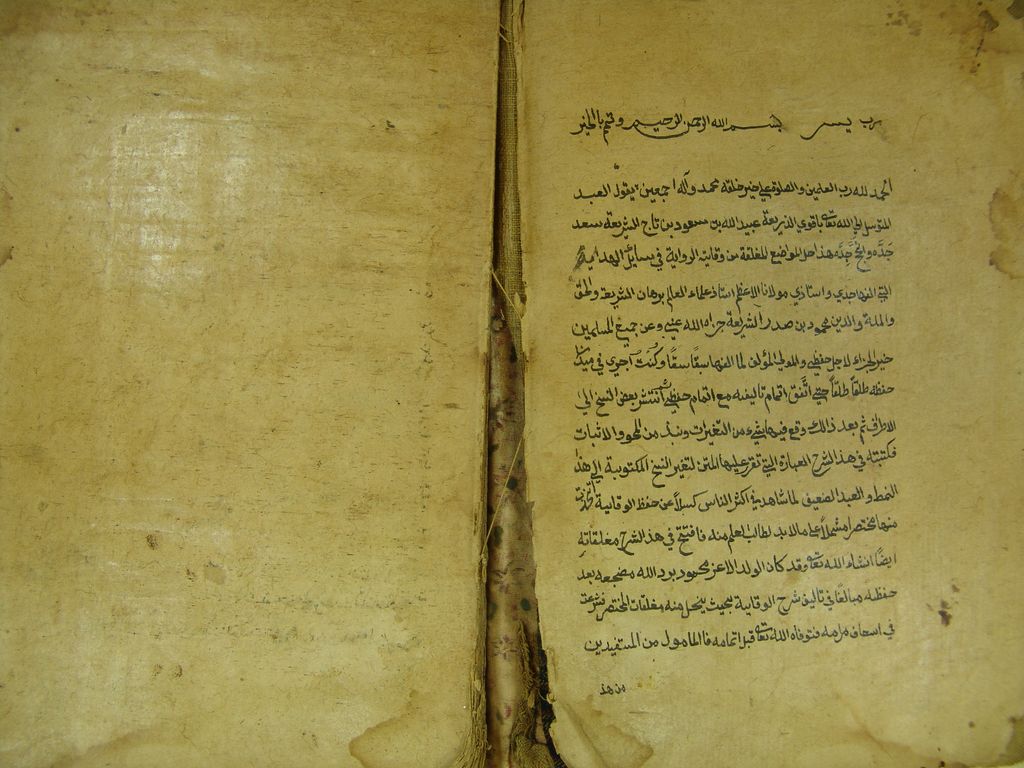 رب يسر بسم الله الرحمن الرحيم وتمم بالخير
الحمد لله رب العلمين والصلوة على خير خلقه محمد وآله اجمعين يقول العبد
المتوسل الى الله تعالى باقوى الذريعة عبيد الله بن مسعود بن تاج الشريعة سعد
جده وانجح جده هذا حل المواضع المغلقة من وقاية الرواية في مسائل الهداية
التي الفها جدي واستاذي مولانا الاعظم استاذ علماء العالم برهان الشريعة والحق
والملة والدين محمود بن صدر الشريعة جزاه الله عني وعن جميع المسلمين
خير الجزاء لاجل حفظي والمولى المؤلف لما الفها سبقا سبقا وكنت اجري في ميدان
حفظه طلقا طلقا حتى اتفق اتمام تاليفه مع اتمام حفظي انتشر بعض النسخ الى
الاطراف ثم بعد ذالك وقع فيها شيء من التغيرات ونبذ من المحو والاثبات
فكتبته في هذا الشرح العبارة التي تقرر عليها المتن لتغير النسخ المكتوبة الى هذا
النمط والعبد الضعيف لما شاهد في اكثر الناس كسلا عن حفظ الوقاية اتخذت
منها مختصرا مشملا على ما لا بد لطالب العلم منه فافتتح في هذا الشرح مغلقاته
ايضا انشاء الله تعالى وقد كان الولد الاعز محمود برد الله مضجعه بعد
حفظه مبالغا في تاليف شرح الوقاية بحيث ينحل منه مغلقات المختصر فشرعت
في اسعاف مرامه فتوفاه الله تعالى قبل اتمامه فالمامول من المستفيدين
من هذ